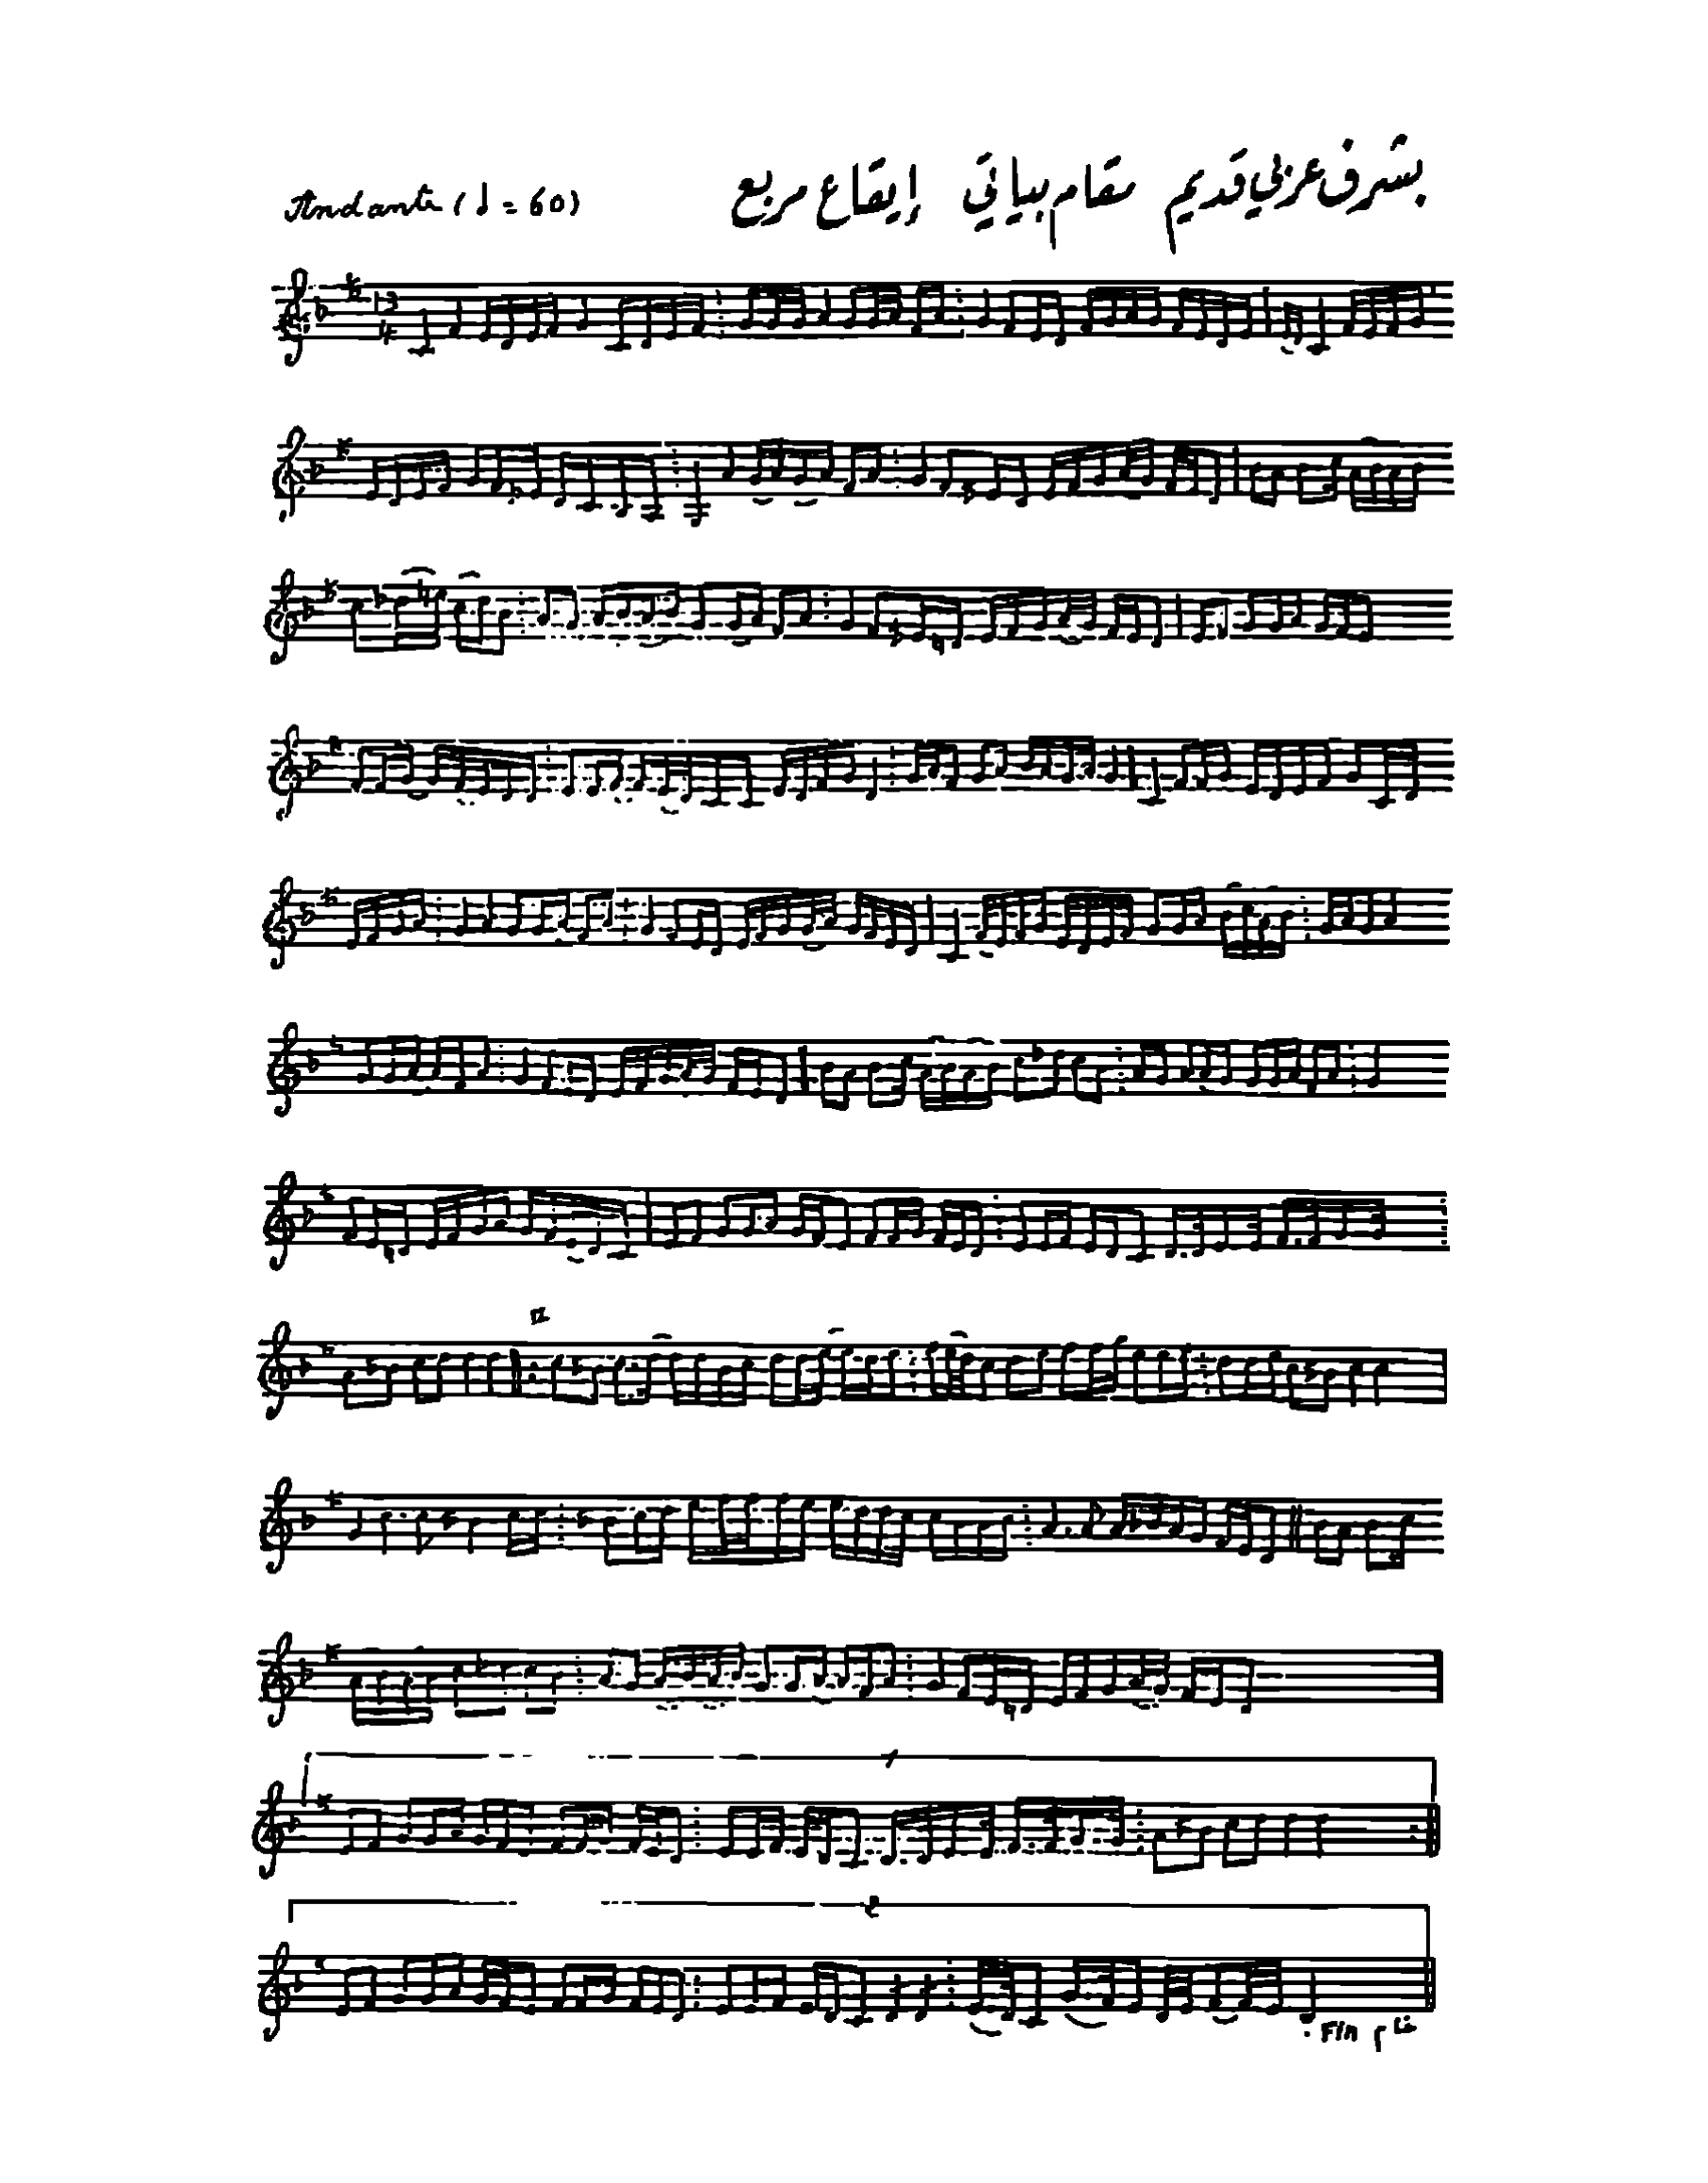 بشرف عربي قديم مقام بياتي إيقاع مربع
Andante (♩ = 60)
13
4
1
2
Fin ختام